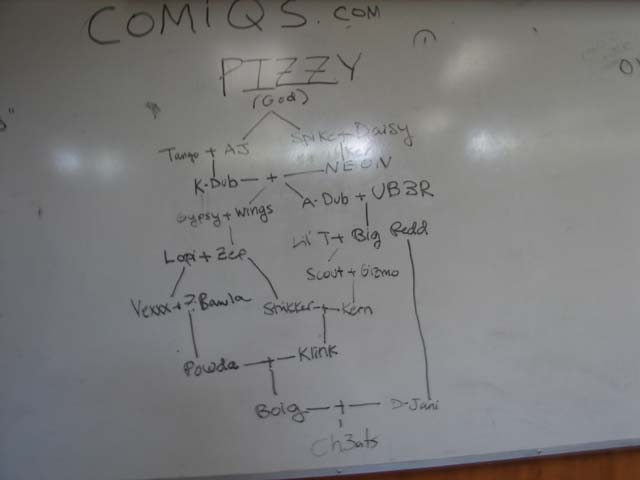 COMiQS.COM
PIZZY
(God)
Tango + AJ
Spike + Daisy
K-Dub — + — NEON
A-Dub + UB3R
Gypsy + Wings
Lil T + Big Redd
Lopi + Zef
Scout + Gizmo
Vexxx + Z.Bawla
Strikker — + — Kern
Powda — + — Klink
Boig — + — D-Jani
Ch3ats